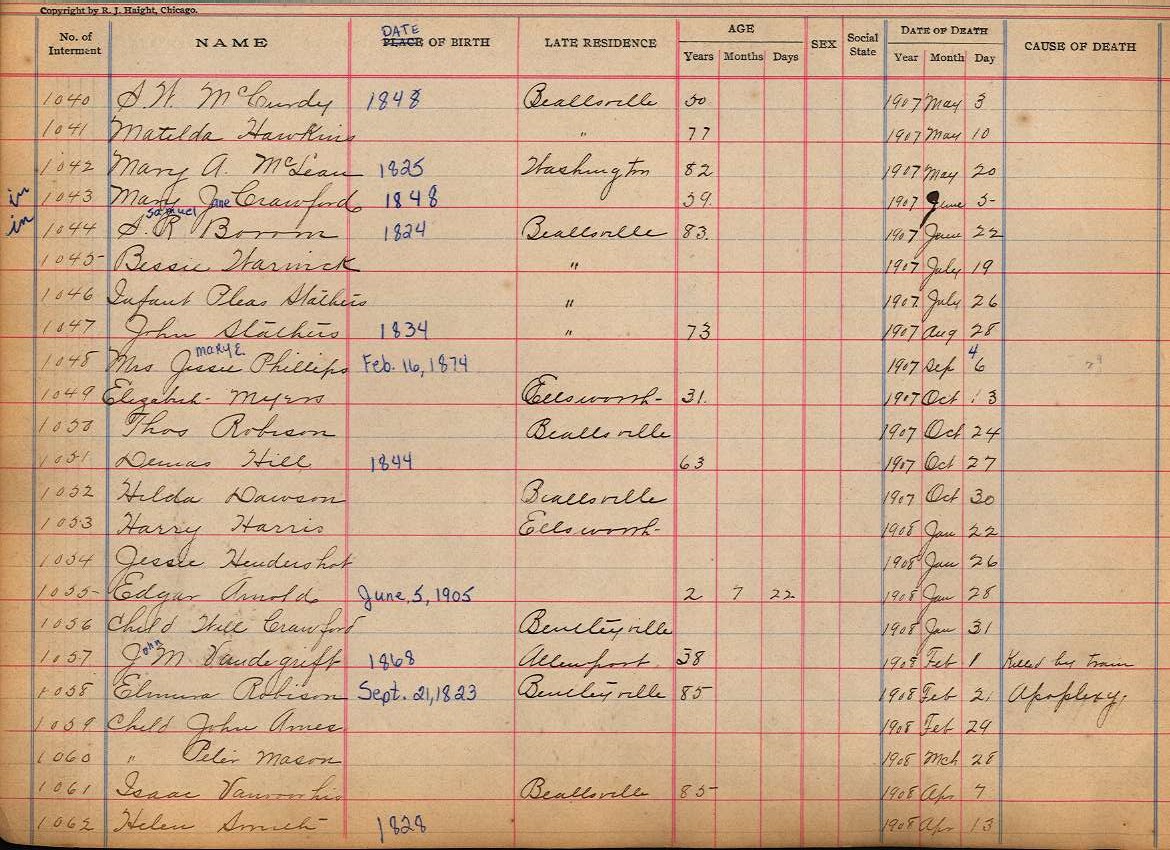 Copyright by R. J. Haight, Chicago.
No. of Interment NAME DATE PLACE OF BIRTH LATE RESIDENCE AGE Years Months Days SEX Social State DATE OF DEATH Year Month Day CAUSE OF DEATH
1040 S. W. McCurdy 1848 Beallsville 50 1907 May 3
1041 Matilda Hawkins " 77 1907 May 10
1042 Mary A. McLean 1825 Washington 82 1907 May 20
in 1043 Mary Jane Crawford 1848 59. 1907 June 5
in 1044 Samuel S. R Borom 1824 Beallsville 83. 1907 June 22
1045 Bessie Warwick " 1907 July 19
1046 Infant Pleas Stathers " 1907. July 26
1047 John Stathers 1834 " 73 1907 Aug 28
1048 Mrs Jessie Mary E. Phillips Feb. 16, 1874 1907 Sep 4 6
1049 Elizabeth Myers Ellsworth 31. 1907 Oct 13
1050 Thos Robison Beallsville 1907 Oct 24
1051 Demas Hill 1844 63 1907 Oct 27
1052 Hilda Dawson Beallsville 1907 Oct 30
1053 Harry Harris Ellsworth 1908 Jan 22
1054 Jessie Hendershot 1908 Jan 26
1055 Edgar Arnold June, 5, 1905 2 7 22 1908 Jan 28
1056 Child Will Crawford Bentleyville 1908 Jan 31
1057 J John M Vandegriff 1868 Allenport 38 1908 Feb 1 Killed by train
1058 Elmira Robison Sept. 21, 1823 Bentleyville 85 1908 Feb 21 Apoplexy,
1059 Child John Ames 1908 Feb 24
1060 " Peter Mason 1908 Mch 28
1061 Isaac Vanvoorhis Beallsville 85 1908 Apr 7
1062 Helen Smith 1828 1908 Apr 13